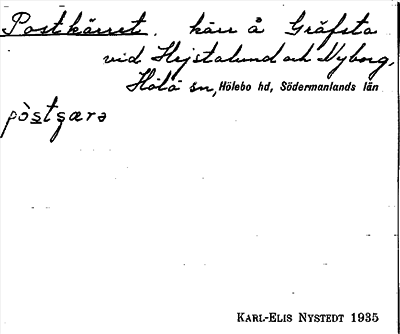 Postkärret. kärr å Gräfsta
vid Hejstalund och Nyborg,
Hölö sn, Hölebo hd, Södermanlands län
pòstçærə
KARL-ELIS NYSTEDT 1935